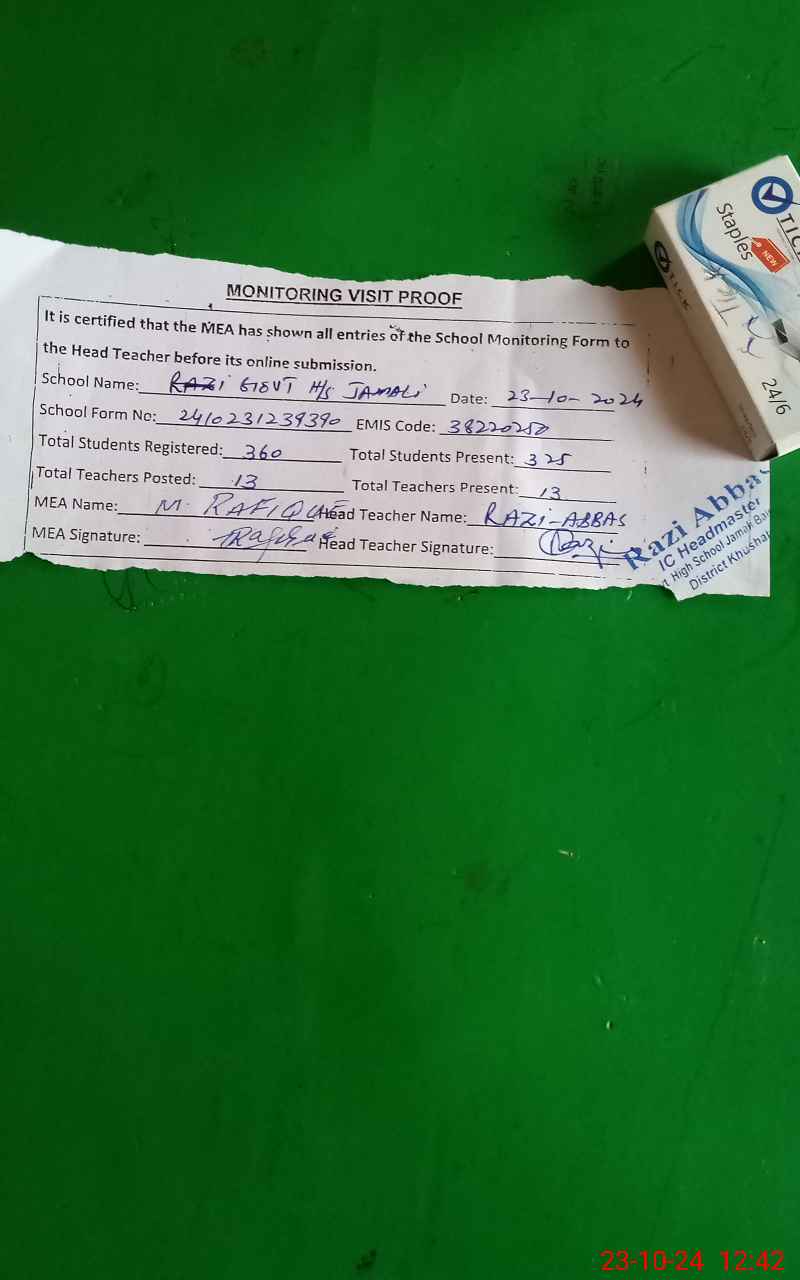 MONITORING VISIT PROOF
It is certified that the MEA has shown all entries of the School Monitoring Form to
the Head Teacher before its online submission.
School Name: RAZI GOVT H/S JAMALI Date: 23-10-2024
School Form No: 2410231239390 EMIS Code: 38220250
Total Students Registered: 360 Total Students Present: 325
Total Teachers Posted: 13 Total Teachers Present: 13
MEA Name: M. RAFIQUE Head Teacher Name: RAZI-ABBAS
MEA Signature: Head Teacher Signature: Razi
Razi Abbas
IC Headmaster
High School Jamali
District Khusha
TICK
Staples
NEW
TICK
24/6
23-10-24 12:42